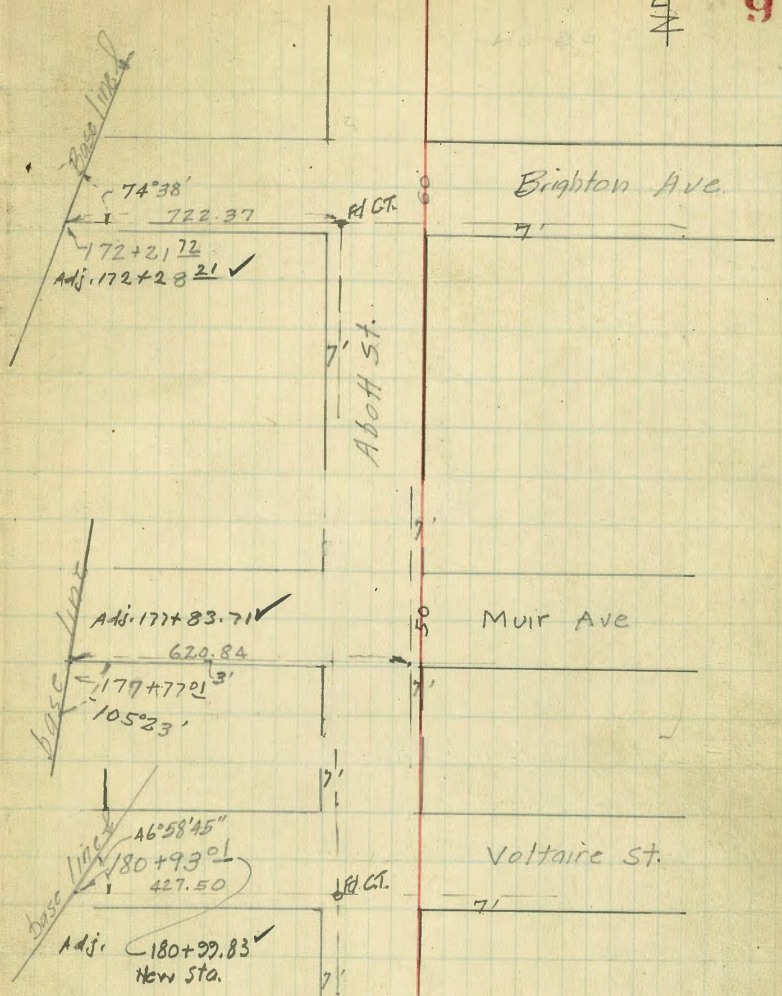 N
9
Base line
74°38'
722.37
Fd C.T.
60
Brighton Ave.
7'
172+21 72
Adj. 172+28 21 ✓
7'
Abott St.
7'
base line
Adj. 177+83.71 ✓
50
Muir Ave
620.84
3'
177+77 01
7'
105°23'
7'
base line
46°58'45"
180+93 01
Voltaire St.
427.50
Fd C.T.
7'
Adj. 180+99.83 ✓
New Sta.
7'